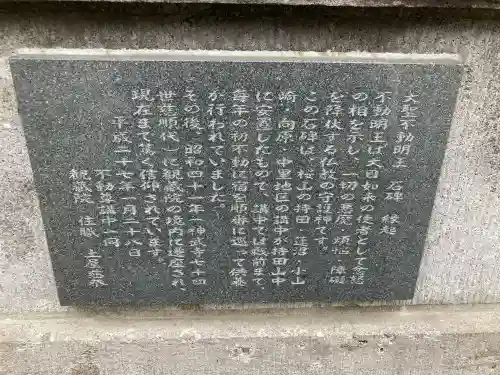 大聖不動明王 石碑 縁起
不動明王は大日如来の使者として忿怒
の相を示し、一切の悪魔・煩悩・障礙
を降伏する仏教の守護神です。
この石碑は、桜山の持田・蓮沼・小山
崎・向原・中里地区の講中が持田山中
に安置したもので、講中では戦前まで、
毎年の初不動に宿を順番に巡って供養
が行われていました。
その後、昭和四十一年神武寺七十四
世哲順代に観蔵院の境内に遷座され
現在まで篤く信仰されています。
平成二十七年一月二十八日
不動尊講中一同
観蔵院 住職